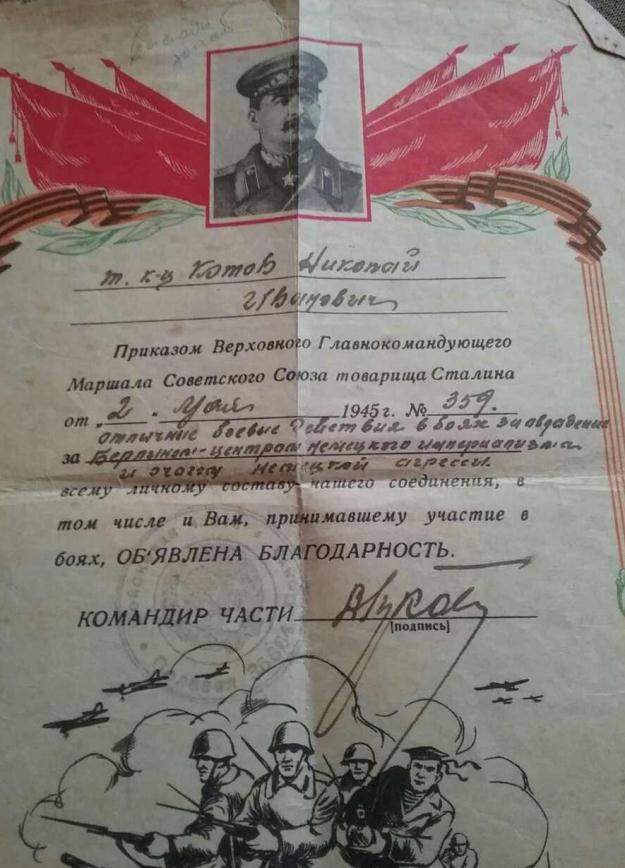 т. к-ц Котов Николай
Иванович
Приказом Верховного Главнокомандующего
Маршала Советского Союза товарища Сталина
от „2„ Мая 1945 г. № 359.
отличные боевые действия в боях за овладение
за Берлином-центром немецкого империализма
и очагом немецкой агрессии.
всему личному составу нашего соединения, в
том числе и Вам, принимавшему участие в
боях, ОБ‘ЯВЛЕНА БЛАГОДАРНОСТЬ.
КОМАНДИР ЧАСТИ
[подпись]